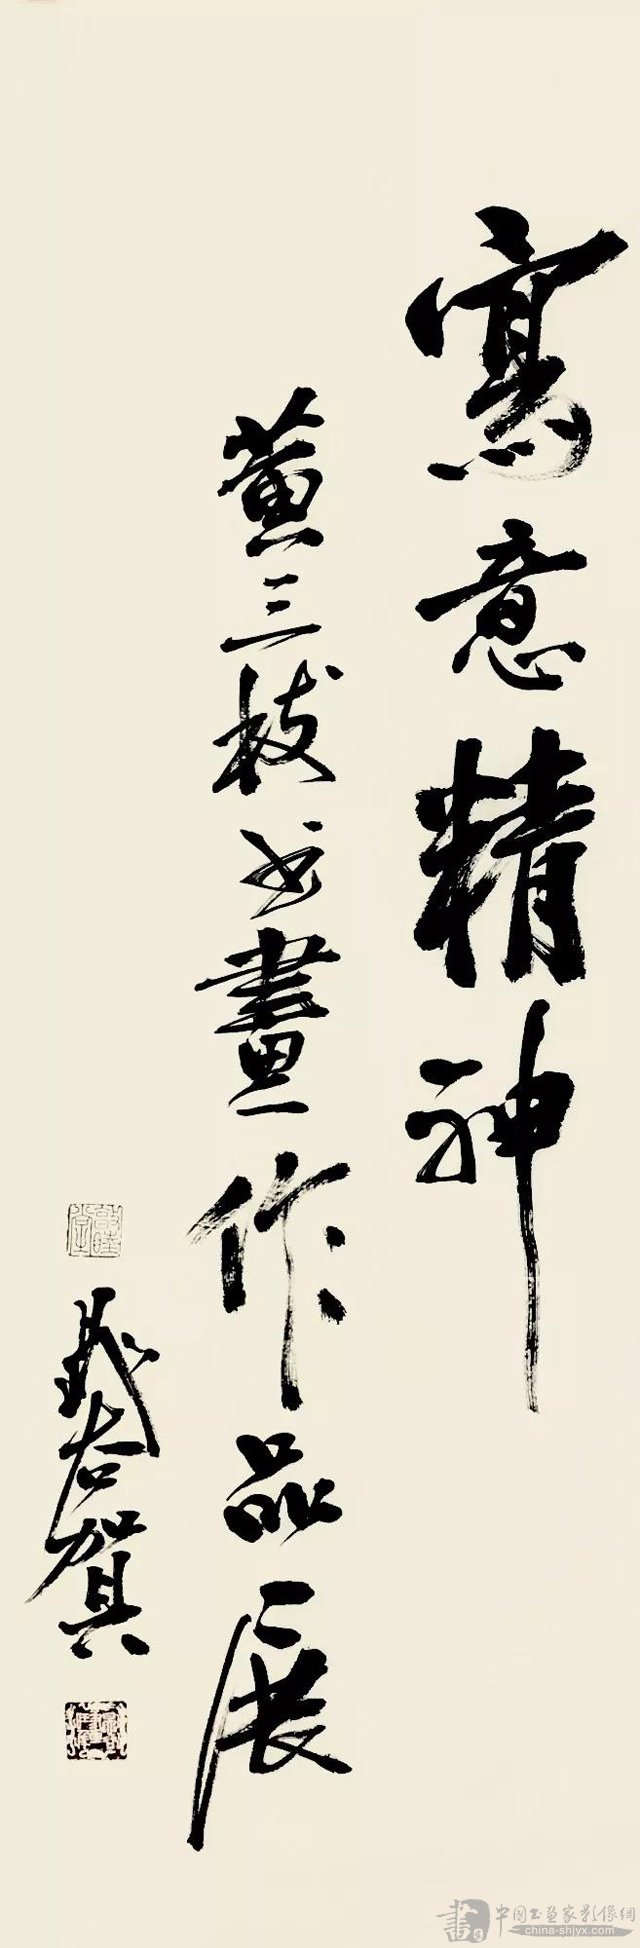 寫意精神
黄三枝书畫作品展
賀
書
中國书画家影像網
china-shjyx.com